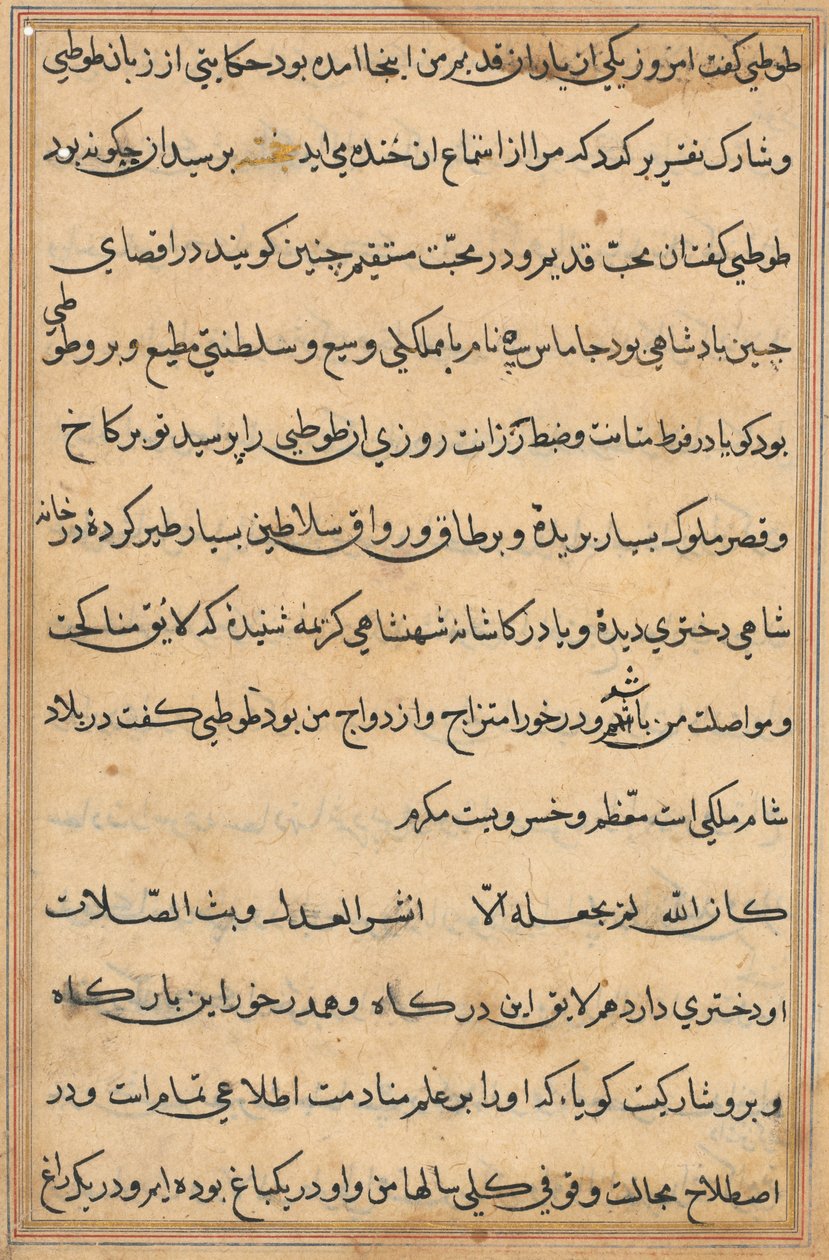 طوطی کفت امروز یکی از یاران قدیم من اینجا امده بود حکایتی از زبان طوطی
و شارک تقریر کرد که مرا از استماع ان خنده می اید خجسته برسید ان چکونه بود
طوطی کفت ان محبّ قدیم و در محبّت مستقیم چنین کویند در اقصای
چین بادشاهی بود جاماس نام با مملکتی وسیع و سلطنتی مطیع و برو طوطی
بود کویا در فرط متانت و ضبط رزانت روزی ان طوطی را پرسید تو بر کاخ
و قصر ملوک بسیار بریدهٔ و بر طاق و رواق سلاطین بسیار طیر کردهٔ در خانه
شاهی دختری دیدهٔ و یا در کاشانه شهنشاهی کریمه شنیدهٔ که لایق مناکحت
و مواصلت من باشد و در خور امتزاج و ازدواج من بود طوطی کفت در بلاد
شام ملکی است معّظم و خسرویست مکرم
کان اللّه لم یجعله الّا انشر العدل و بث الصّلات
او دختری دارد هم لایق این درکاه و هم در خور این بارکاه
و برو شارکیست کویا که او را بر علم منادمت اطلاعی تمام است و در
اصطلاح مجالست وقوفی کلی سالها من و او در یکباغ بوده ایم و در یک راغ